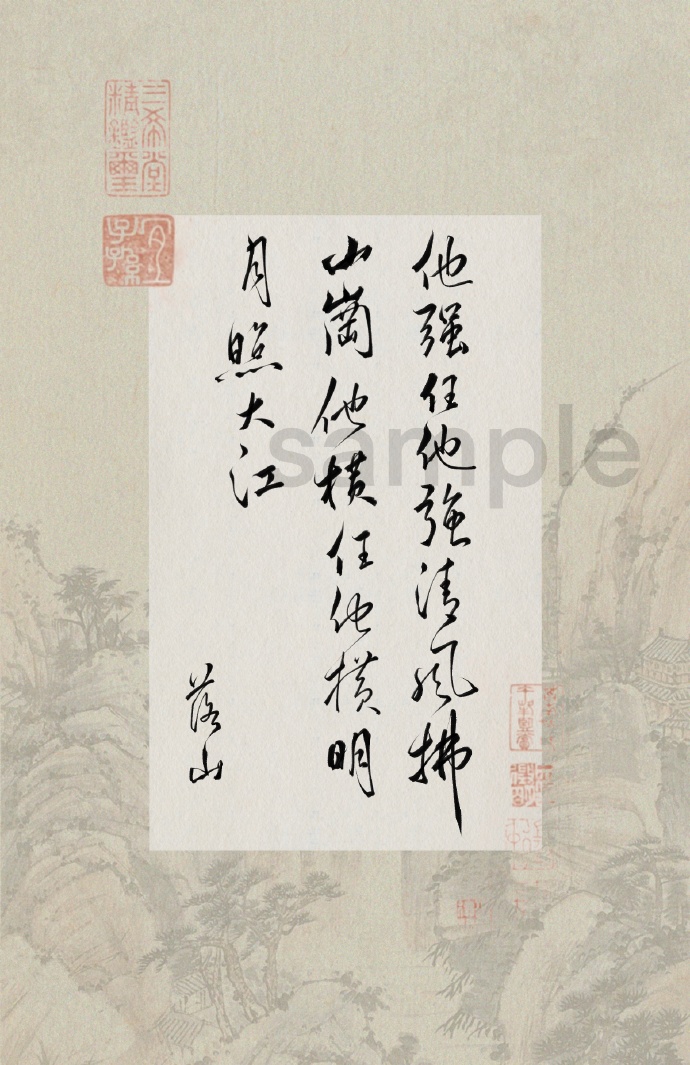 他强任他強清風拂
山崗他横任他横明
月照大江
落山
sample
三希堂
精鑑璽
宜
子孫